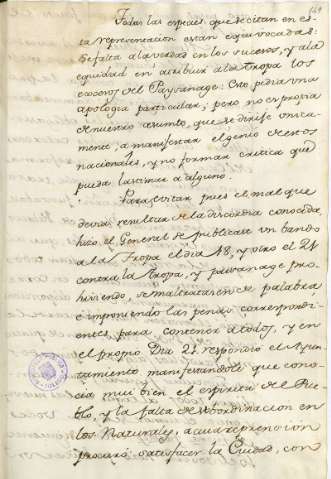 149
Todas las especies que se citan en es-
ta representacion estan equivocadas:
Se falta a la verdad en los sucesos, y a la
equidad en atribuir a la tropa los
excesos del Paysanage: Esto pedia una
apologia particular; pero no es propia
de nuestro asunto, que se dirije unica-
mente, a manifestar el genio de estos
nacionales, y no formar critica que
pueda lastimar a alguno.
Para evitar pues el mal que
devia resultar de la discordia conocida
hizo el General se publicase un bando
a la Tropa el dia 18, y otro el 21
contra la tropa, y paisanage pro-
hiviendo, se maltratasen de palabra
é imponiendo las penas correspondi-
entes, para contener a todos, y en
el propio Dia 21 respondió el Ayun-
tamiento manifestandole que cono-
cia mui bien el espiritu del Pue-
blo, y la falta de subordinacion en
los Naturales, a cuia reprension
procuró satisfacer la Ciudad, con